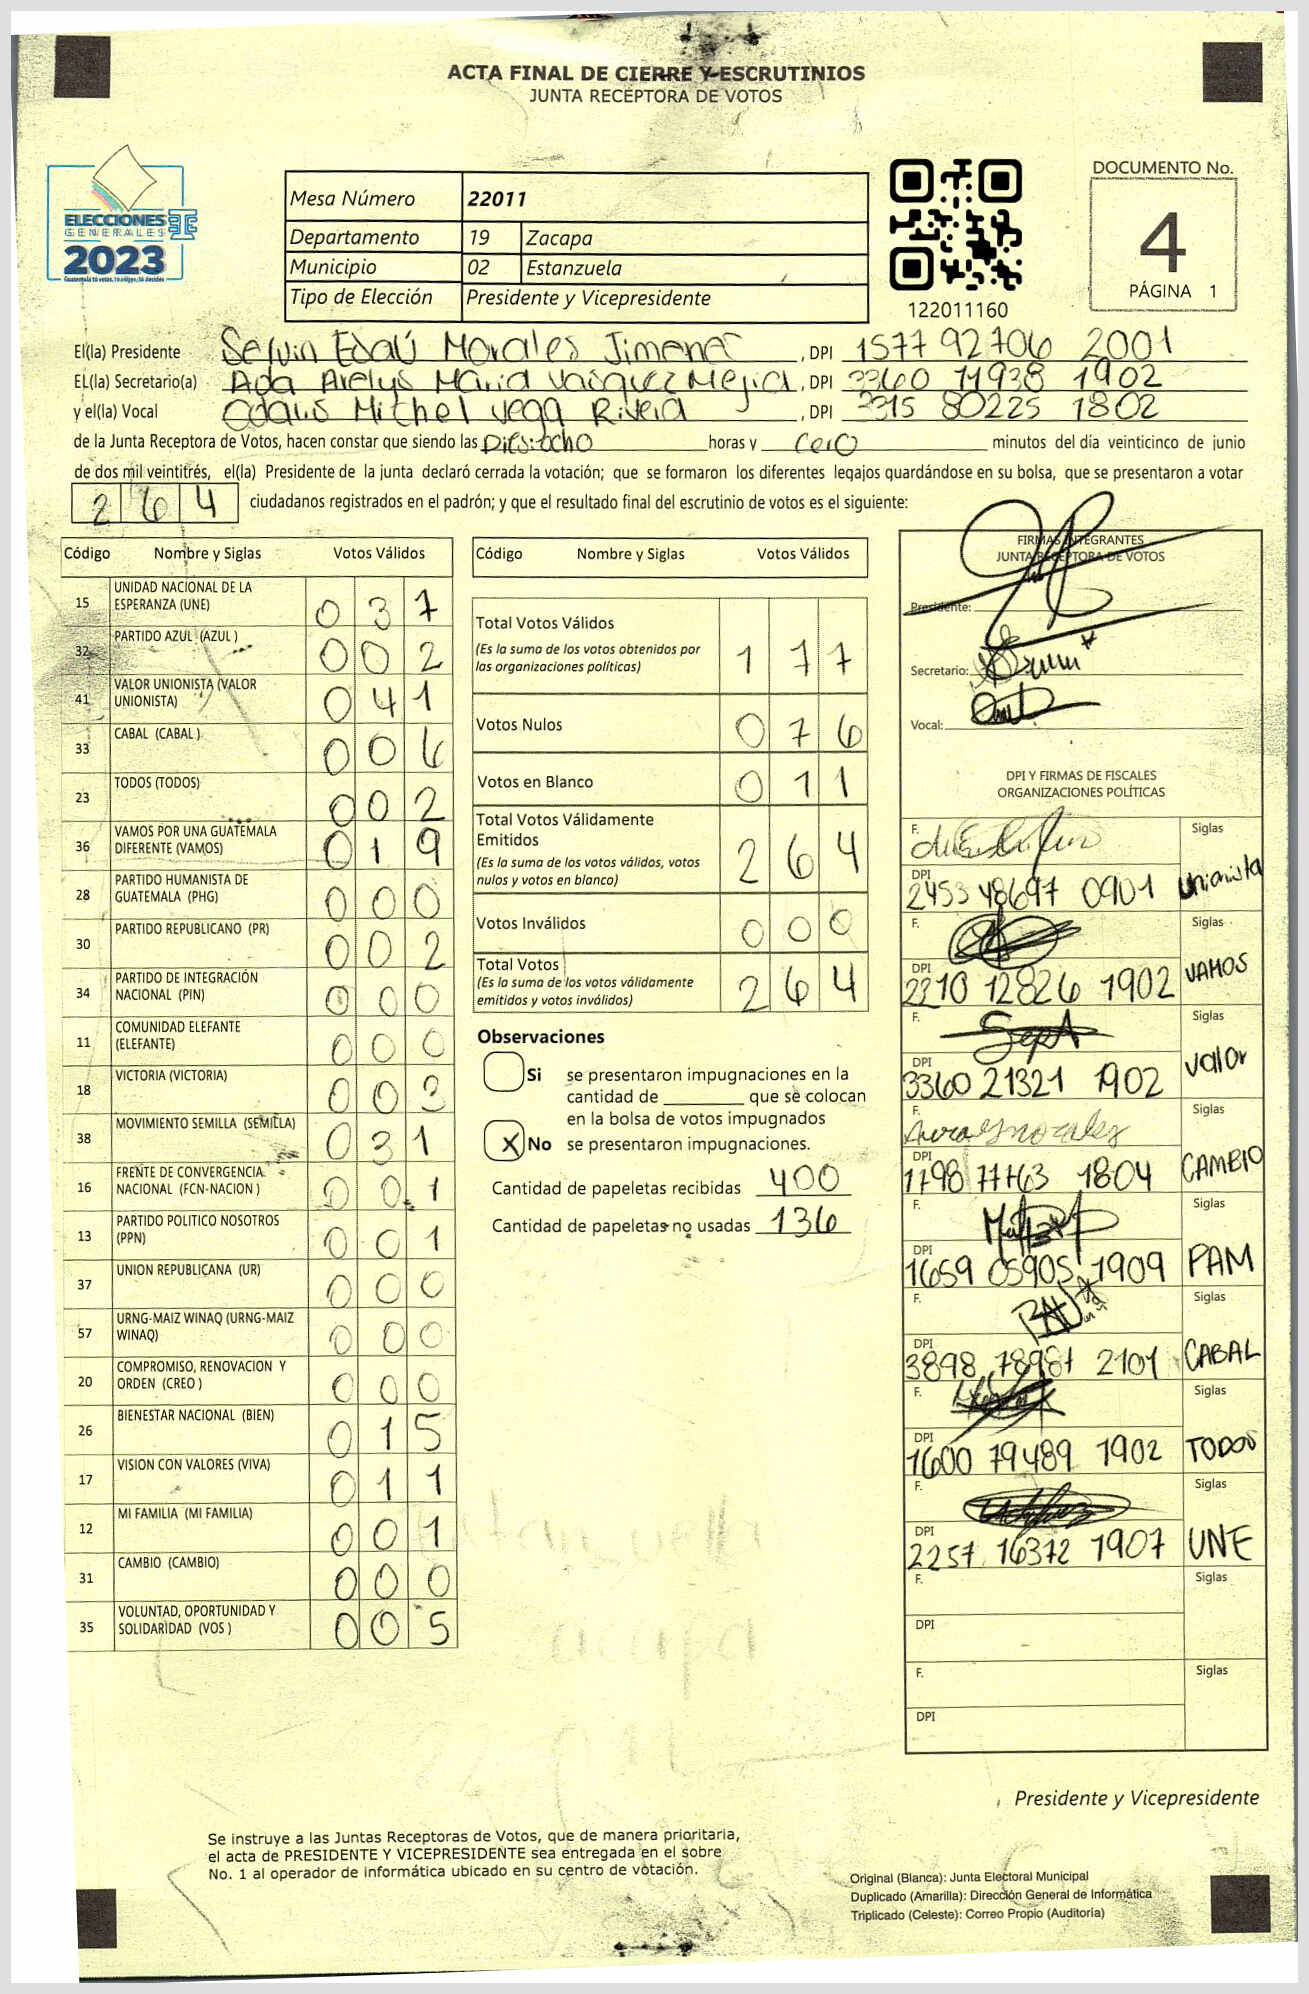 ACTA FINAL DE CIERRE Y ESCRUTINIOS
JUNTA RECEPTORA DE VOTOS
ELECCIONES
GENERALES
2023
Mesa Número 22011
Departamento 19 Zacapa
Municipio 02 Estanzuela
Tipo de Elección Presidente y Vicepresidente
122011160
DOCUMENTO No.
4
PÁGINA 1
El(la) Presidente Selvin Esaú Morales Jimenez, DPI 1577 92706 2001
EL(la) Secretario(a) Ada Arelys Maria Vasquez Mejia, DPI 3360 11938 1902
y el(la) Vocal Odalis Michel Vega Rivera, DPI 3315 80225 1802
de la Junta Receptora de Votos, hacen constar que siendo las Dieciocho horas y cero minutos del día veinticinco de junio
de dos mil veintitrés, el(la) Presidente de la junta declaró cerrada la votación; que se formaron los diferentes legajos guardándose en su bolsa, que se presentaron a votar
264 ciudadanos registrados en el padrón; y que el resultado final del escrutinio de votos es el siguiente:
Código Nombre y Siglas Votos Válidos
15 UNIDAD NACIONAL DE LA ESPERANZA (UNE) 037
32 PARTIDO AZUL (AZUL ) 002
41 VALOR UNIONISTA (VALOR UNIONISTA) 041
33 CABAL (CABAL ) 006
23 TODOS (TODOS) 002
36 VAMOS POR UNA GUATEMALA DIFERENTE (VAMOS) 019
28 PARTIDO HUMANISTA DE GUATEMALA (PHG) 000
30 PARTIDO REPUBLICANO (PR) 002
34 PARTIDO DE INTEGRACIÓN NACIONAL (PIN) 000
11 COMUNIDAD ELEFANTE (ELEFANTE) 000
18 VICTORIA (VICTORIA) 003
38 MOVIMIENTO SEMILLA (SEMILLA) 031
16 FRENTE DE CONVERGENCIA NACIONAL (FCN-NACION ) 001
13 PARTIDO POLITICO NOSOTROS (PPN) 001
37 UNION REPUBLICANA (UR) 000
57 URNG-MAIZ WINAQ (URNG-MAIZ WINAQ) 000
20 COMPROMISO, RENOVACION Y ORDEN (CREO ) 000
26 BIENESTAR NACIONAL (BIEN) 015
17 VISION CON VALORES (VIVA) 011
12 MI FAMILIA (MI FAMILIA) 001
31 CAMBIO (CAMBIO) 000
35 VOLUNTAD, OPORTUNIDAD Y SOLIDARIDAD (VOS ) 005
Código Nombre y Siglas Votos Válidos
Total Votos Válidos 177
(Es la suma de los votos obtenidos por
las organizaciones políticas)
Votos Nulos 076
Votos en Blanco 011
Total Votos Válidamente
Emitidos 264
(Es la suma de los votos válidos, votos
nulos y votos en blanco)
Votos Inválidos 000
Total Votos 264
(Es la suma de los votos válidamente
emitidos y votos inválidos)
Observaciones
Si se presentaron impugnaciones en la
cantidad de ________ que se colocan
en la bolsa de votos impugnados
X No se presentaron impugnaciones.
Cantidad de papeletas recibidas 400
Cantidad de papeletas no usadas 136
FIRMAS INTEGRANTES
JUNTA RECEPTORA DE VOTOS
Presidente:
Secretario:
Vocal:
DPI Y FIRMAS DE FISCALES
ORGANIZACIONES POLÍTICAS
F. Siglas
DPI 2453 48697 0901 Unionista
F. Siglas
DPI 2210 12826 1902 VAMOS
F. Siglas
DPI 3360 21321 1902 Valor
F. Siglas
DPI 1798 77763 1804 CAMBIO
F. Siglas
DPI 1659 05905 1909 PAM
F. Siglas
DPI 3898 78981 2101 CABAL
F. Siglas
DPI 1600 79489 1902 TODOS
F. Siglas
DPI 2257 16372 1907 UNE
F. Siglas
DPI
F. Siglas
DPI
Presidente y Vicepresidente
Se instruye a las Juntas Receptoras de Votos, que de manera prioritaria,
el acta de PRESIDENTE Y VICEPRESIDENTE sea entregada en el sobre
No. 1 al operador de informática ubicado en su centro de votación.
Original (Blanca): Junta Electoral Municipal
Duplicado (Amarilla): Dirección General de Informática
Triplicado (Celeste): Correo Propio (Auditoría)